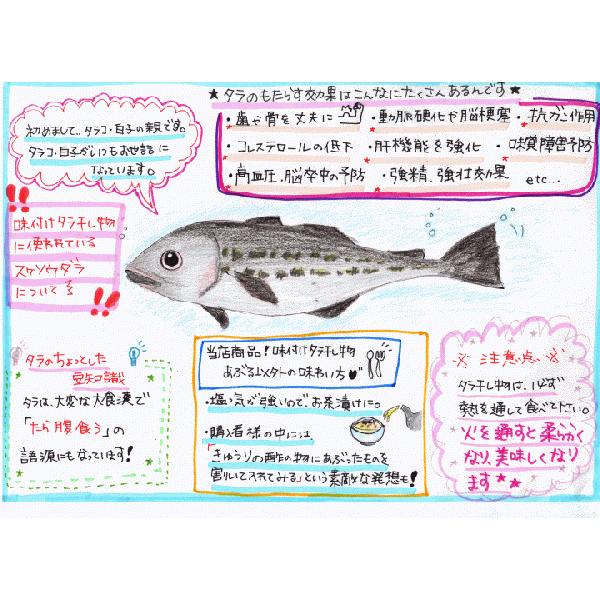 ★タラのもたらす効果はこんなにたくさんあるんです★
・歯や骨を丈夫に ・動脈硬化や脳梗塞 ・抗ガン作用
・コレステロールの低下 ・肝機能を強化 ・味覚障害予防
・高血圧、脳卒中の予防 ・強精、強壮効果 etc…
初めまして、タラコ・白子の親です。
タラコ・白子がいつもお世話に
なっています。
味付けタラ干し物
に使われている
スケソウダラ
について
タラのちょっとした
豆知識
タラは、大変な大食漢で
「たら腹食う」の
語源にもなっています!
当店商品!味付けタラ干し物
あぶる以外の味わい方
・塩気が強いのでお茶漬けに。
・購入者様の中には、
「きゅうりの酢の物にあぶったものを
割いて入れてみる」という素敵な発想も!
※注意点※
タラ干し物は、必ず
熱を通して食べて下さい。
火を通すと柔らかく
なり、美味しくなり
ます★★